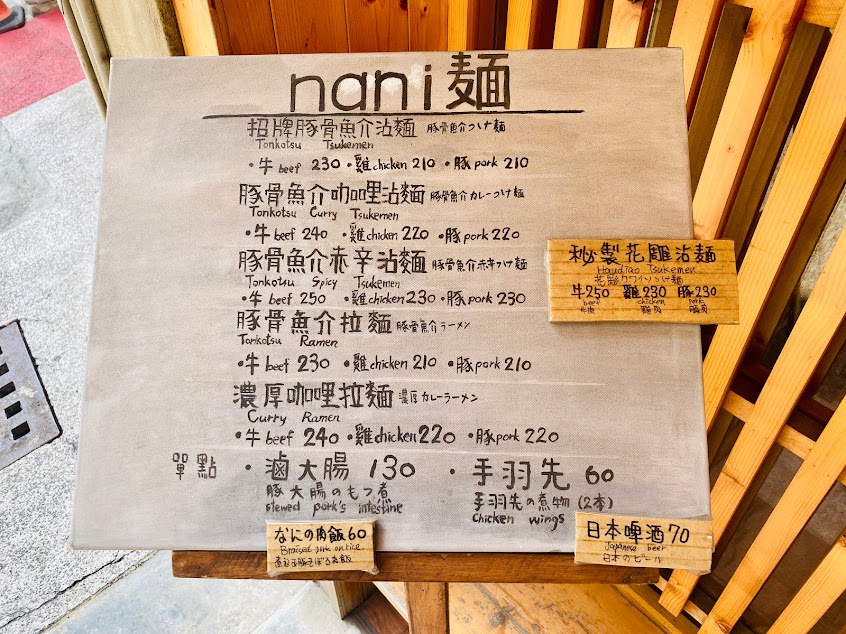 nani麵
招牌豚骨魚介沾麵 豚骨魚介つけ麵
Tonkotsu Tsukemen
・牛 beef 230 ・雞 chicken 210 ・豚 pork 210
豚骨魚介咖哩沾麵 豚骨魚介カレーつけ麵
Tonkotsu Curry Tsukemen
・牛 beef 240 ・雞 chicken 220 ・豚 pork 220
豚骨魚介赤辛沾麵 豚骨魚介赤辛つけ麵
Tonkotsu Spicy Tsukemen
・牛 beef 250 ・雞 chicken 230 ・豚 pork 230
豚骨魚介拉麵 豚骨魚介ラーメン
Tonkotsu Ramen
・牛 beef 230 ・雞 chicken 210 ・豚 pork 210
濃厚咖哩拉麵 濃厚カレーラーメン
Curry Ramen
・牛 beef 240 ・雞 chicken 220 ・豚 pork 220
秘製花雕沾麵
Huadiao Tsukemen
牛250 雞230 豚230
beef chicken pork
牛肉 鶏肉 豚肉
單點 ・滷大腸 130 ・手羽先 60
豚大腸のもつ煮 手羽先の煮物 (2本)
stewed pork's intestine Chicken wings
なんの肉飯60
Braised pork on rice
日本啤酒70
Japanese beer
日本のビール